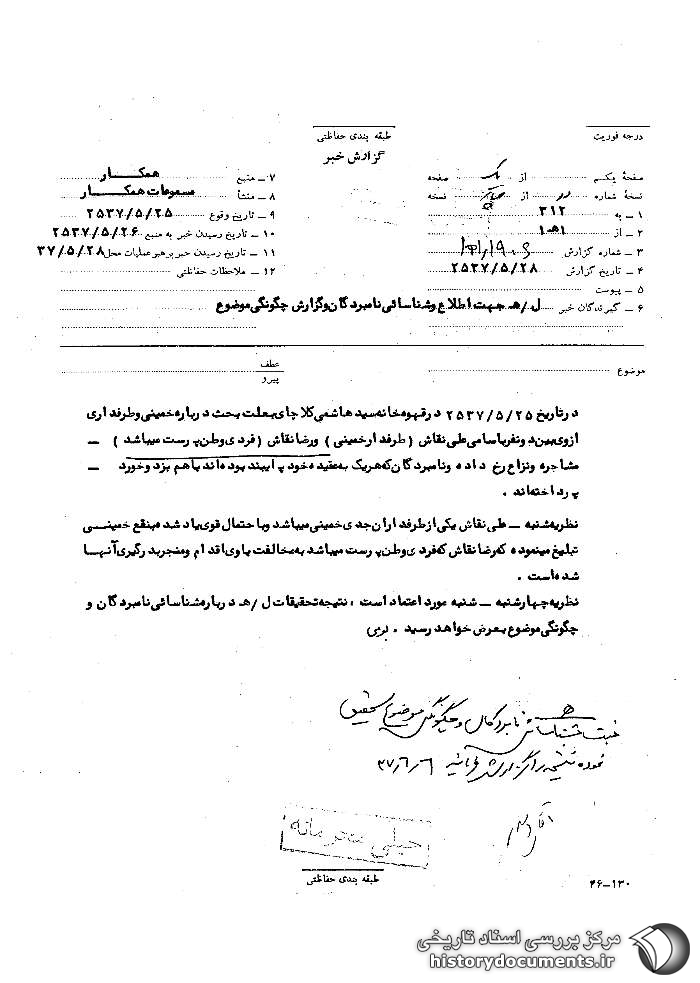 درجه فوریت
طبقه بندی حفاظتی
گزارش خبر
صفحهٔ یکم از یک صفحه
نسخهٔ شماره از نسخه
۱ – به ۳۱۲
۲ – از ۱۵۱
۳ – شماره گزارش
۴ – تاریخ گزارش ۲۵۳۷/۵/۲۸
۵ – پیوست
۶ – گیرندگان خبر ل/هـ جهت اطلاع و شناسائی نامبردگان و گزارش چگونگی موضوع
۷ – منبع همکار
۸ – منشأ مسموعات همکار
۹ – تاریخ وقوع ۲۵۳۷/۵/۲۵
۱۰ – تاریخ رسیدن خبر به منبع ۲۵۳۷/۵/۲۶
۱۱ – تاریخ رسیدن خبر برهبر عملیات محل ۳۷/۵/۲۸
۱۲ – ملاحظات حفاظتی
موضوع
عطف
پیرو
در تاریخ ۲۵۳۷/۵/۲۵ در قهوه خانه سید هاشمی کلاچای بعلت بحث درباره خمینی و طرفداری
ازوی بین دو نفر باسامی علی نقاش (طرفدار خمینی) و رضا نقاش (فردی وطن پرست میباشد) –
مشاجره و نزاع رخ داده و نامبردگان که هریک به عقیده خود پایبند بوده اند باهم بزد و خورد –
پرداخته اند .
نظریه شنبه – علی نقاش یکی از طرفداران جدی خمینی میباشد وبا احتمال قوی یاد شده بنفع خمینی
تبلیغ مینموده که رضا نقاش که فردی وطن پرست میباشد به مخالفت باوی اقدام ومنجر بدرگیری آنها
شده است .
نظریه چهارشنبه – شنبه مورد اعتماد است ، نتیجه تحقیقات ل/هـ درباره شناسائی نامبردگان و
چگونگی موضوع بعرض خواهد رسید .
نامبردگان و چگونگی موضوع تحقیق
نموده نتیجه را گزارش فرمائید ۳۷/۶/۶
خیلی محرمانه
طبقه بندی حفاظتی
۴۶–۱۳۰
مرکز بررسی اسناد تاریخی
historydocuments.ir